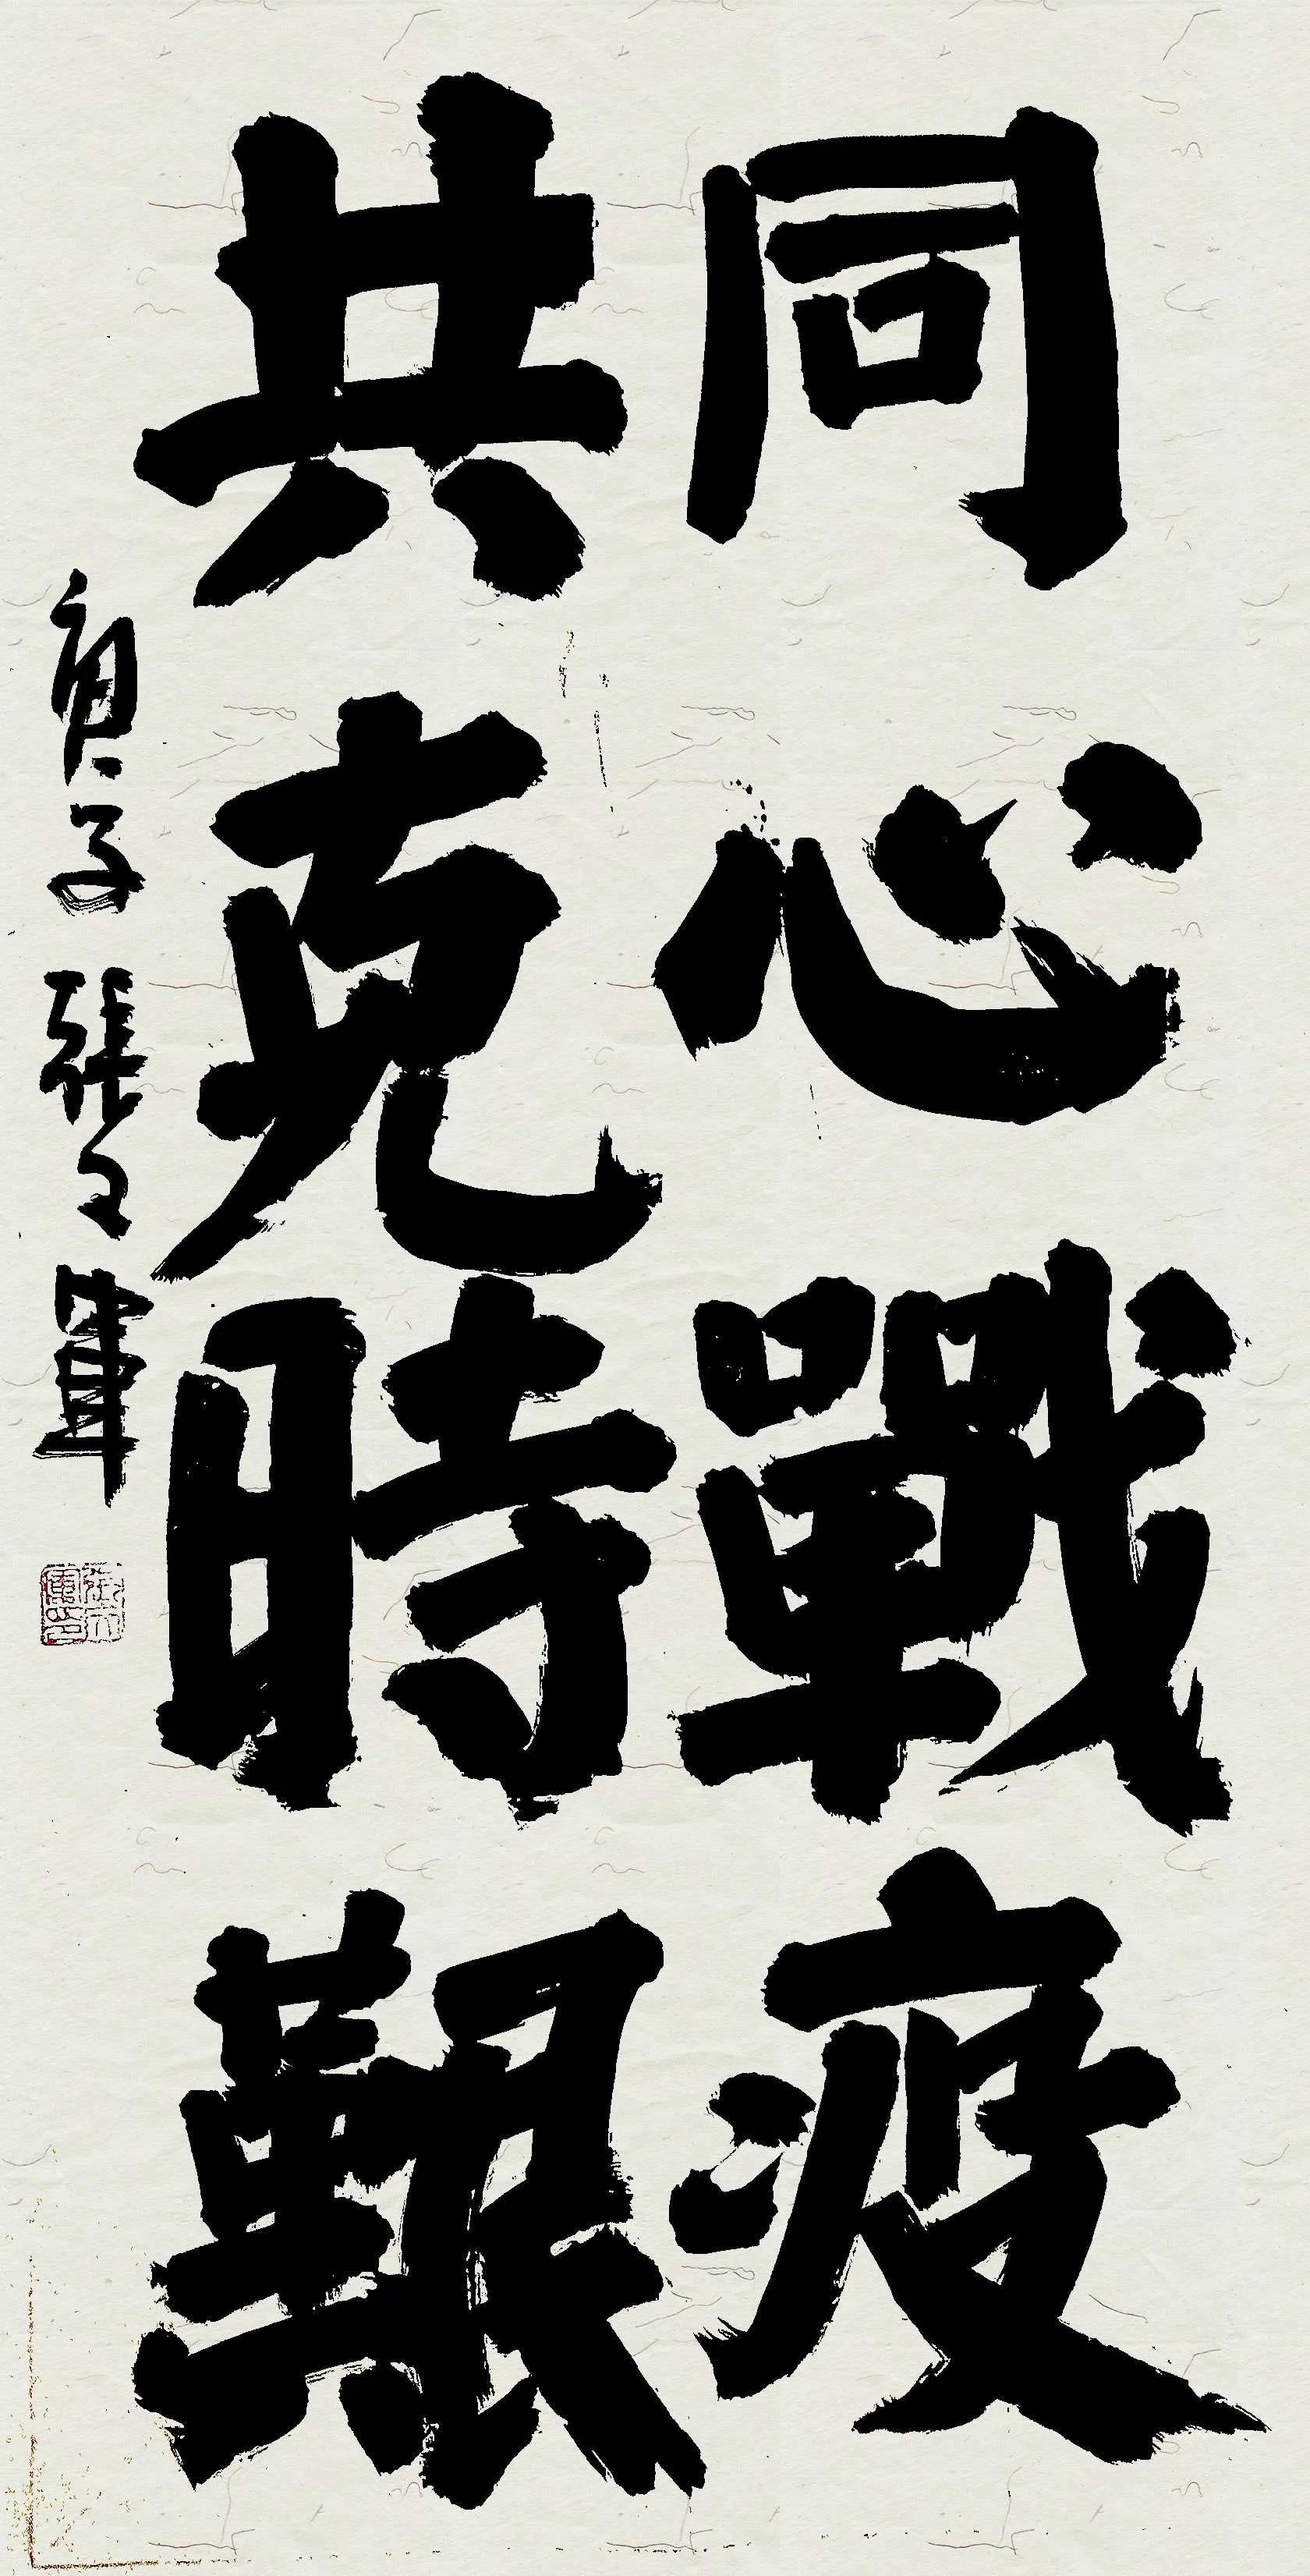 同心戰疫
共克時艱
庚子張